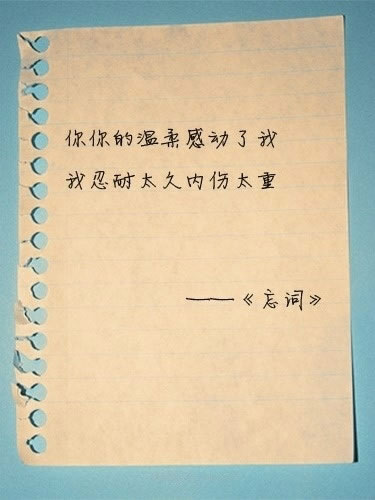 你你的温柔感动了我
我忍耐太久内伤太重
——《忘词》